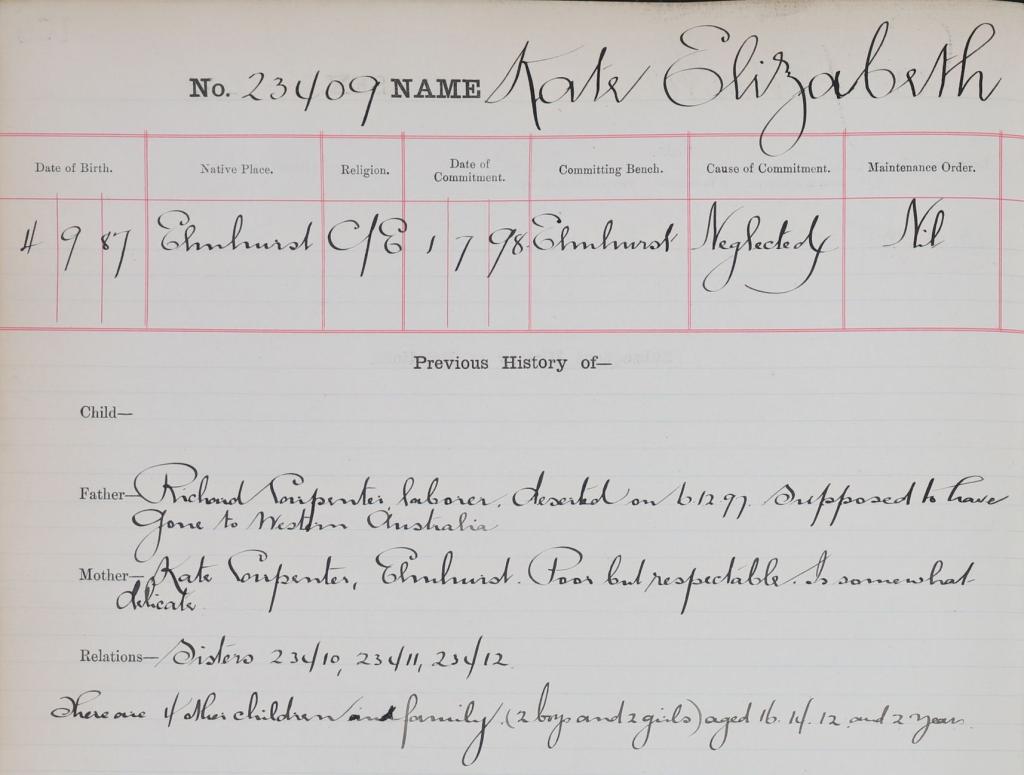 No. 23409 NAME Kate Elizabeth
Date of Birth. Native Place. Religion. Date of Commitment. Committing Bench. Cause of Commitment. Maintenance Order.
4 9 87 Elmhurst C/E 1 7 98 Elmhurst Neglected Nil
Previous History of—
Child—
Father— Richard Carpenter, laborer, deserted on 6 12 97. Supposed to have
gone to Western Australia
Mother— Kate Carpenter, Elmhurst. Poor but respectable. Is somewhat
delicate.
Relations— Sisters 23410, 23411, 23412
There are 4 other children in family. (2 boys and 2 girls) aged 16. 14. 12 and 2 years.